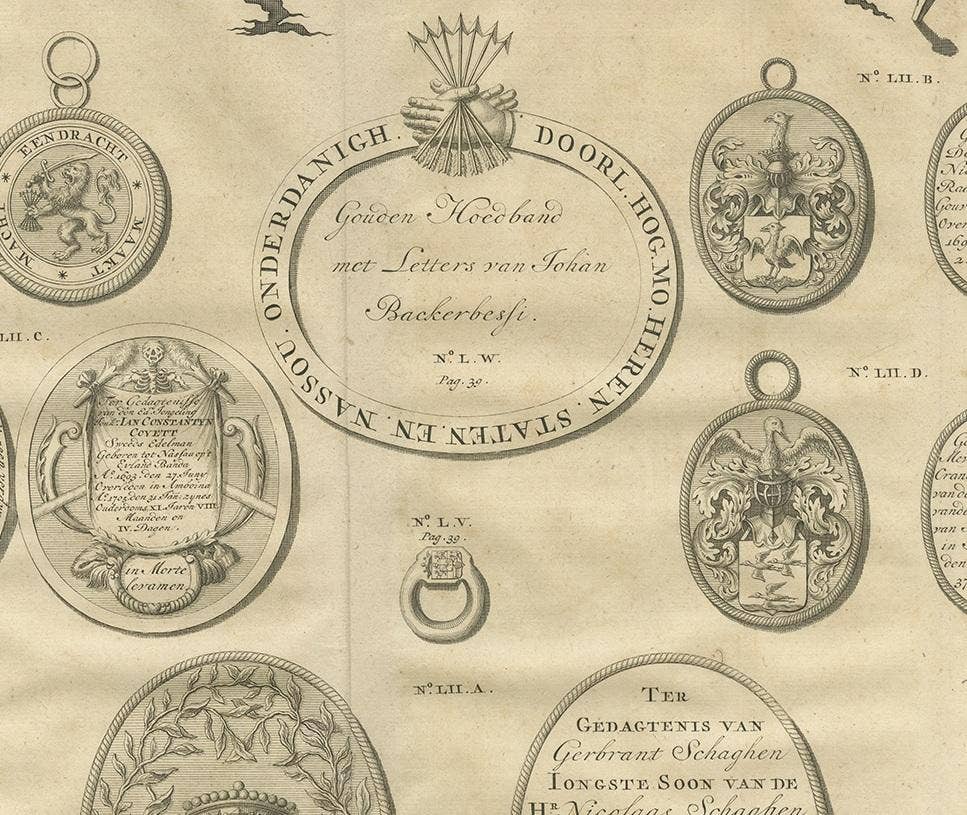 EENDRACHT MAKT MACHT
DOORL. HOG. MO. HEREN. STATEN. EN. NASSOU. ONDERDANIGH.
Gouden Hoedband
met Letters van Johan
Backerbessi.
No. L.W.
Pag. 39.
No. LII. B.
LII. C.
Ter Gedagtenisse
van den Ed: Jongeling
IAN CONSTANTYN
COYETT
Sweeds Edelman
Geboren tot Nassau op't
Eyland Banda
Ao. den 27 Juny
Overleden in Amboina
Ao. den 21 Jan: zynes
Ouderdoms, XI. Jaren VIII
Maanden en
IV. Dagen.
in Morte
levamen
No. LII. D.
No. L.V.
Pag. 39.
No. LII. A.
TER
GEDAGTENIS VAN
Gerbrant Schaghen
IONGSTE SOON VAN DE
HR. Nicolaas Schaghen